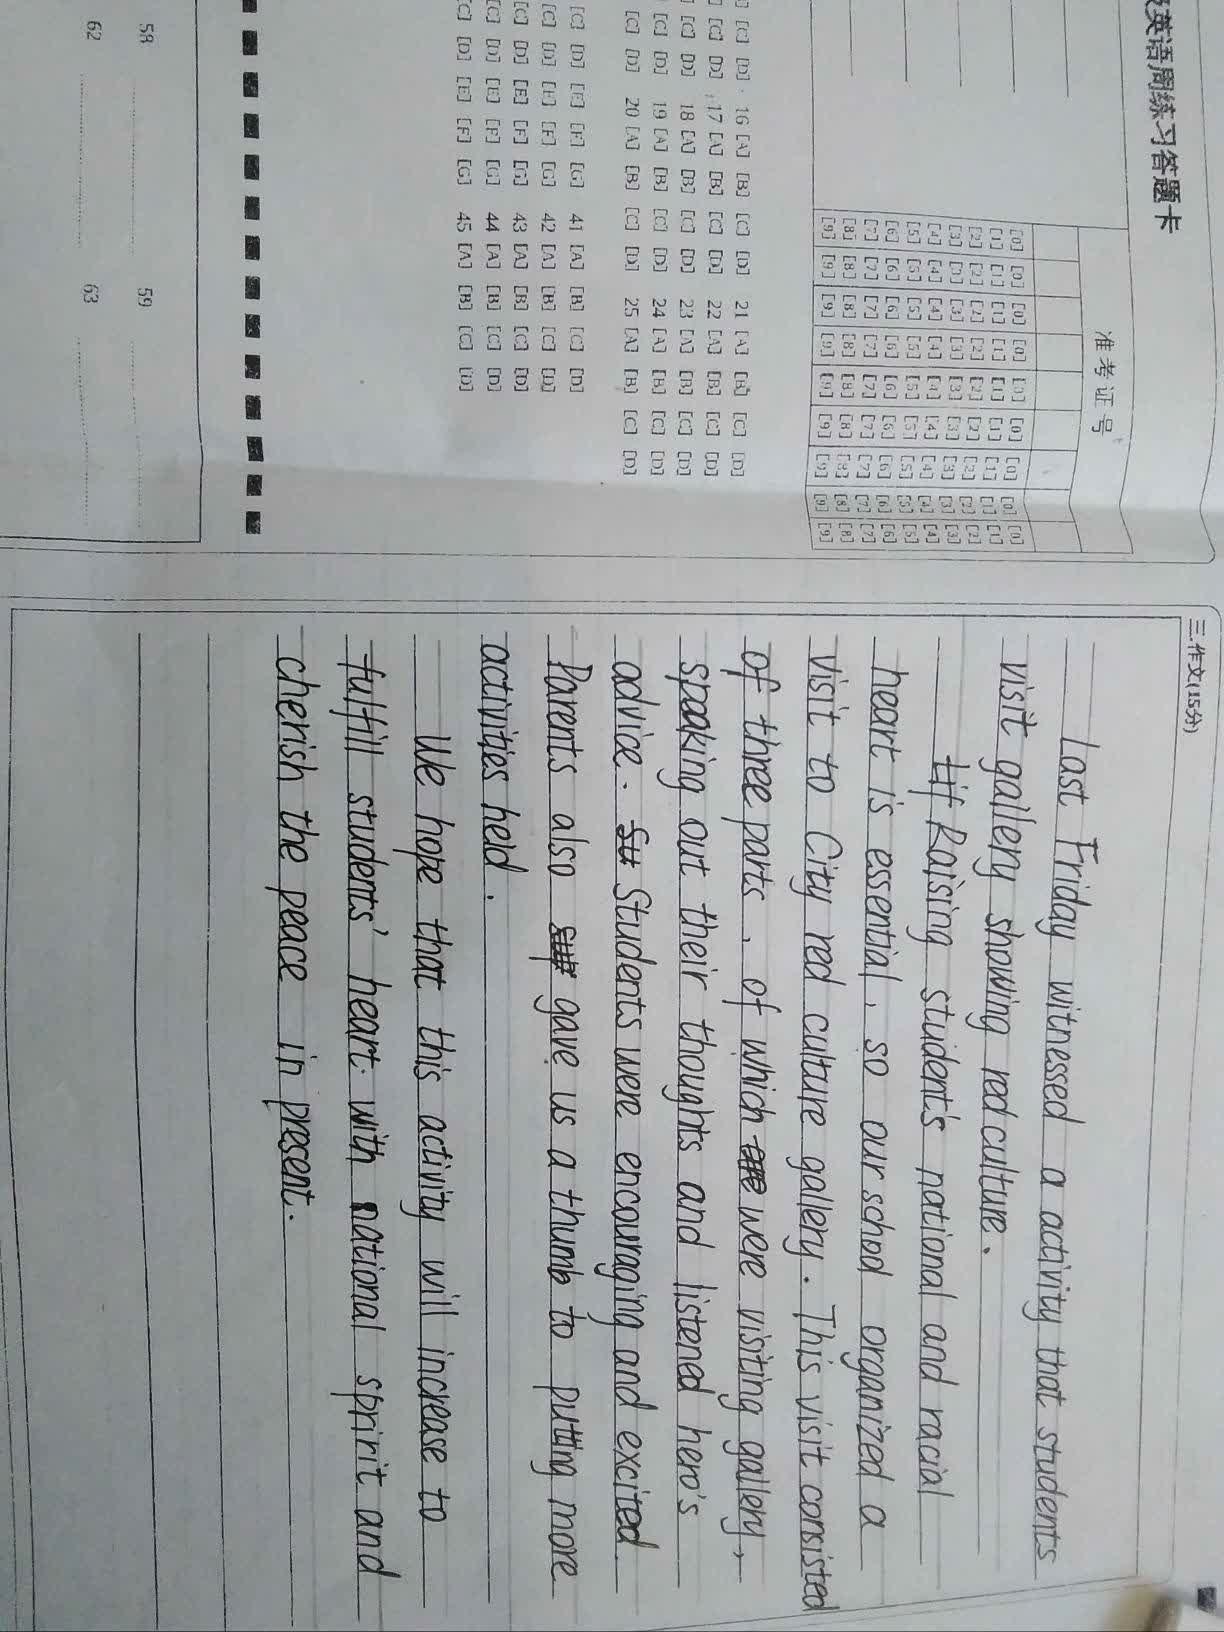 英语周练习答题卡
准考证号
[0] [0] [0] [0] [0] [0] [0] [0] [0]
[1] [1] [1] [1] [1] [1] [1] [1] [1]
[2] [2] [2] [2] [2] [2] [2] [2] [2]
[3] [3] [3] [3] [3] [3] [3] [3] [3]
[4] [4] [4] [4] [4] [4] [4] [4] [4]
[5] [5] [5] [5] [5] [5] [5] [5] [5]
[6] [6] [6] [6] [6] [6] [6] [6] [6]
[7] [7] [7] [7] [7] [7] [7] [7] [7]
[8] [8] [8] [8] [8] [8] [8] [8] [8]
[9] [9] [9] [9] [9] [9] [9] [9] [9]
[C] [D] 16 [A] [B] [C] [D] 21 [A] [B] [C] [D]
[C] [D] 17 [A] [B] [C] [D] 22 [A] [B] [C] [D]
[C] [D] 18 [A] [B] [C] [D] 23 [A] [B] [C] [D]
[C] [D] 19 [A] [B] [C] [D] 24 [A] [B] [C] [D]
[C] [D] 20 [A] [B] [C] [D] 25 [A] [B] [C] [D]
[C] [D] [E] [F] [G] 41 [A] [B] [C] [D]
[C] [D] [E] [F] [G] 42 [A] [B] [C] [D]
[C] [D] [E] [F] [G] 43 [A] [B] [C] [D]
[C] [D] [E] [F] [G] 44 [A] [B] [C] [D]
[C] [D] [E] [F] [G] 45 [A] [B] [C] [D]
58 59
62 63
三.作文(15分)
Last Friday witnessed a activity that students
visit gallery showing red culture.
Raising student's national and racial
heart is essential, so our school organized a
visit to City red culture gallery. This visit consisted
of three parts, of which were visiting gallery,
speaking out their thoughts and listened hero's
advice. Students were encouraging and excited
Parents also gave us a thumb to putting more
activities held.
We hope that this activity will increase to
fulfill students' heart with national spririt and
cherish the peace in present.